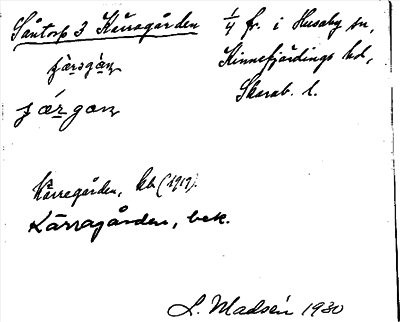 Såntorp 3 Kärragården
¼ fr. i Husaby sn,
Kinnefjärdings hd,
Skarab. l.
Kärregården, kb (1919).
Kärragården, bek.
L. Madsén 1930